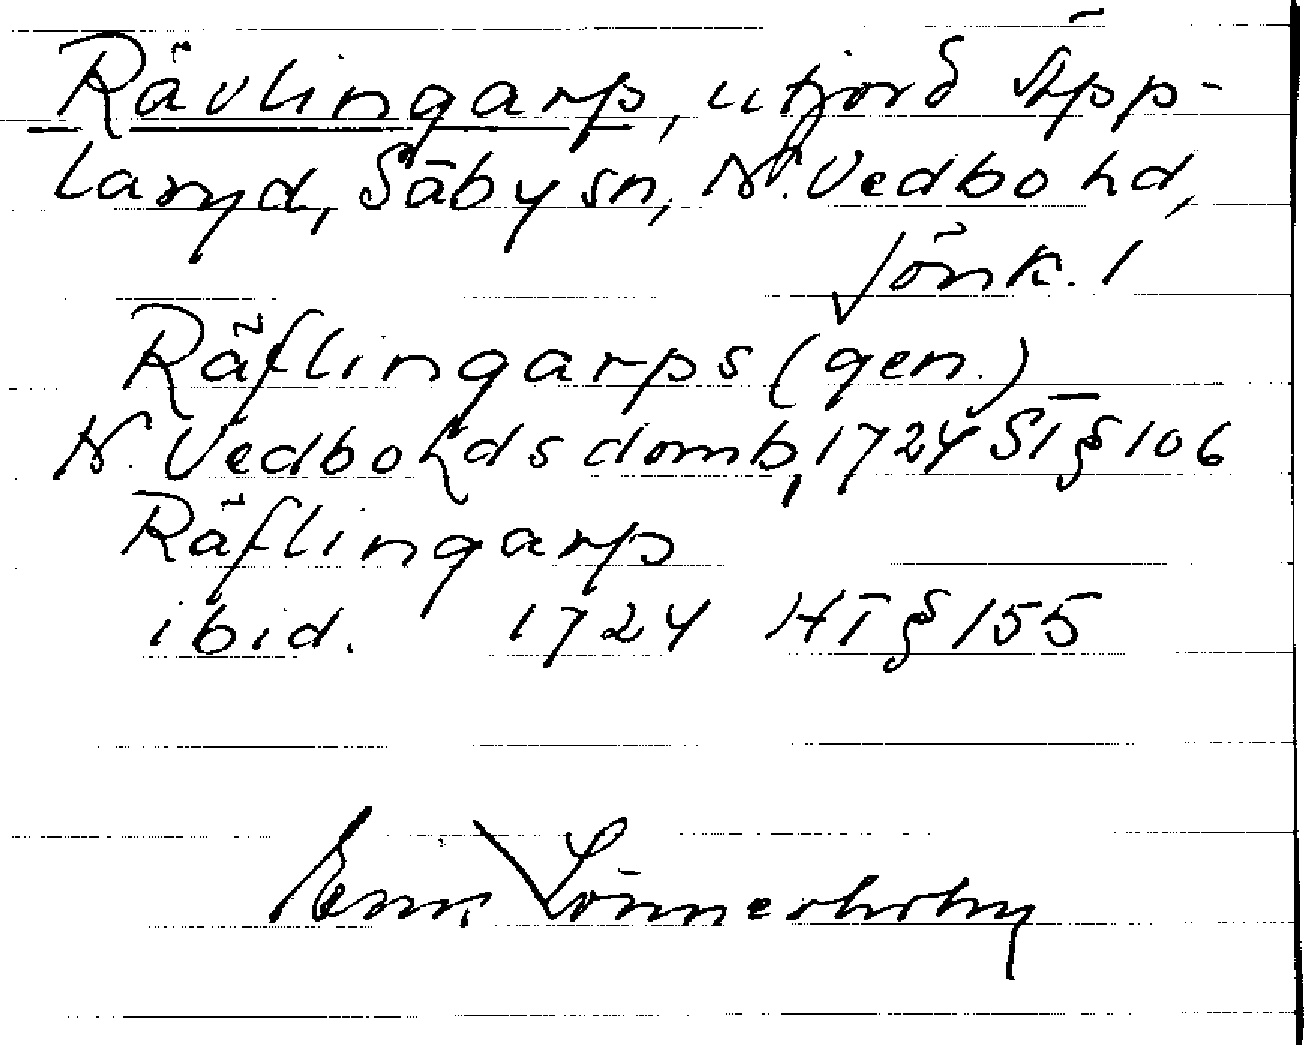 Rävlingarp, utjord Äpp-
laryd, Säby sn, N. Vedbo hd,
Jönk. l
Räflingarps (gen.)
N. Vedbohds domb, 1724 ST § 106
Räflingarp
ibid. 1724 HT § 155